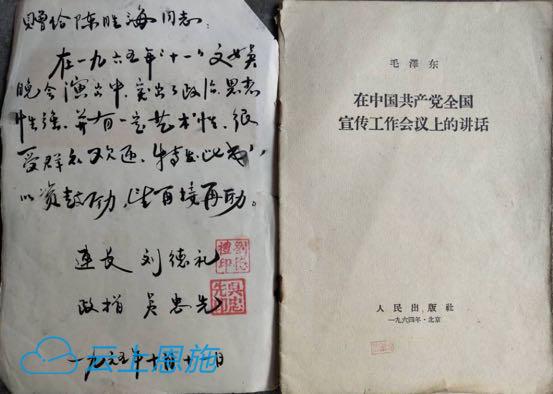 赠给陈胜海同志:
在一九六五年"十一"文娱
晚会演出中,突出了政治,思想
性强,并有一定艺术性,很
受群众欢迎,特发此书
以资鼓励,望再接再励。
连长 刘德礼
刘德禮印
政指 吴忠先
吴忠先印
一九六五年十月十一日
云上恩施
毛泽东
在中国共产党全国
宣传工作会议上的讲话
人民出版社
一九六四年·北京